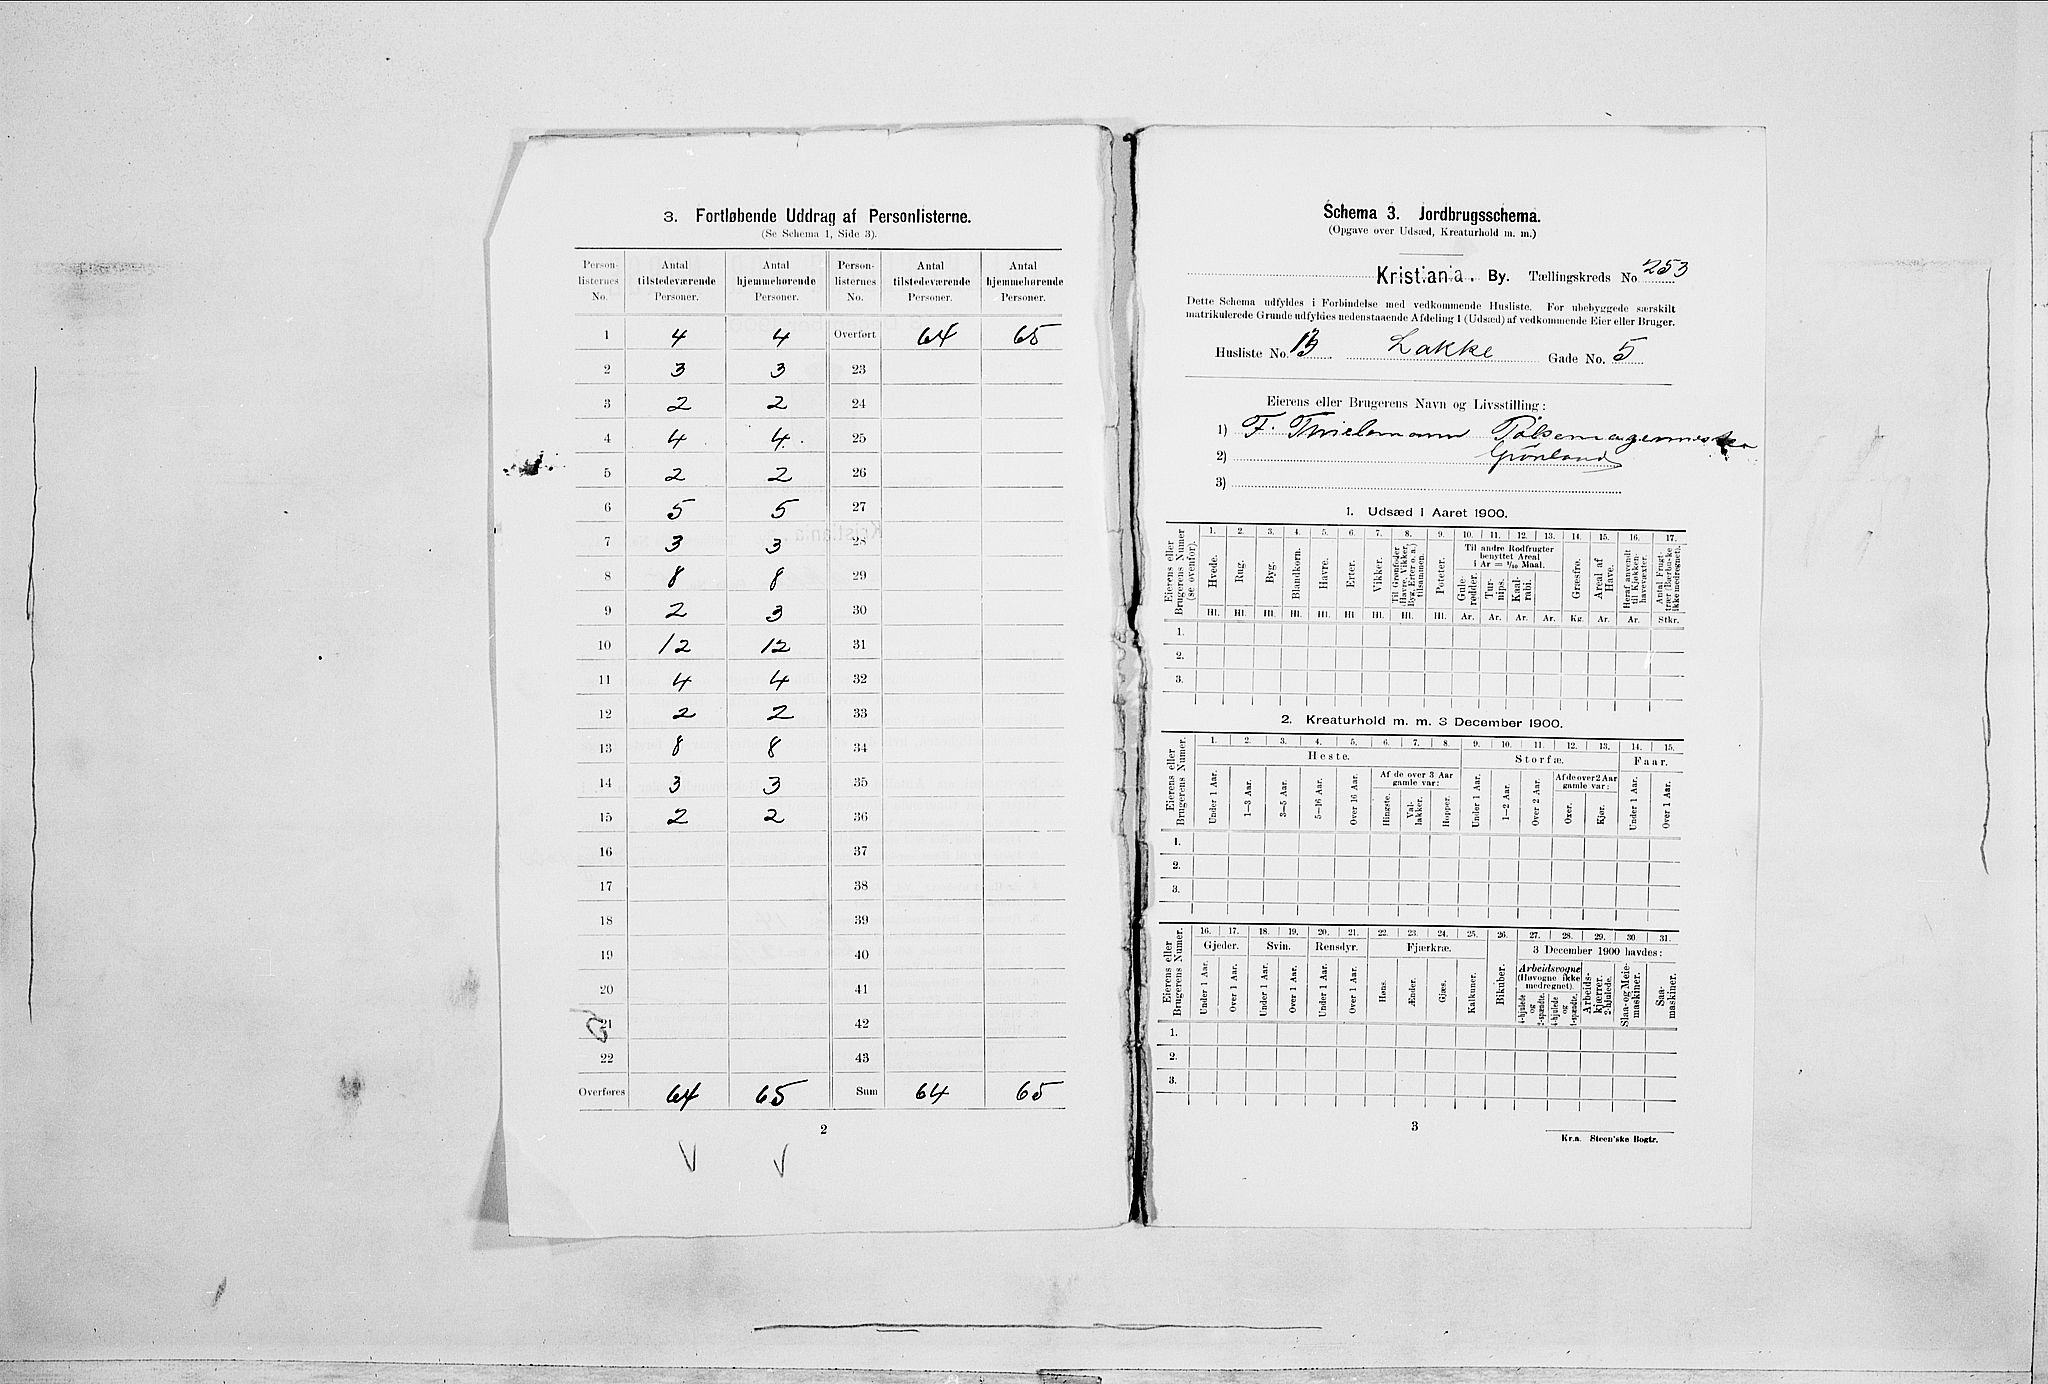 3. Fortløbende Uddrag af Personlisterne.
(Se Schema 1, Side 3).
Person-listernes No. | Antal tilstedeværende Personer. | Antal hjemmehørende Personer. | Person-listernes No. | Antal tilstedeværende Personer. | Antal hjemmehørende Personer.
1 4 4 Overført 64 65
2 3 3 23
3 2 2 24
4 4 4 25
5 2 2 26
6 5 5 27
7 3 3 28
8 8 8 29
9 2 3 30
10 12 12 31
11 4 4 32
12 2 2 33
13 8 8 34
14 3 3 35
15 2 2 36
16 37
17 38
18 39
19 40
20 41
21 42
22 43
Overføres 64 65 Sum 64 65
2
Schema 3. Jordbrugsschema.
(Opgave over Udsæd, Kreaturhold m. m.)
Kristiania. By. Tællingskreds No 253
Dette Schema udfyldes i Forbindelse med vedkommende Husliste. For ubebyggede særskilt
matrikulerede Grunde udfyldes nedenstaaende Afdeling 1 (Udsæd) af vedkommende Eier eller Bruger.
Husliste No. 13 Lakke Gade No. 5
Eierens eller Brugerens Navn og Livsstilling:
1) F. Thielemann Pølsemagermester
2) Grønland
3)
1. Udsæd i Aaret 1900.
Eierens eller Brugerens Numer (se ovenfor).
1. 2. 3. 4. 5. 6. 7. 8. 9. 10. 11. 12. 13. 14. 15. 16. 17.
Hvede. Rug. Byg. Blandkorn. Havre. Erter. Vikker. Til Grønfoder (Havre, Vikker, Byg, Erter o. a.) tilsammen. Poteter.
Til andre Rodfrugter benyttet Areal i Ar = 1/10 Maal.
Gule-rødder. Tur-nips. Kaal-rabi. Græsfrø. Areal af Have. Heraf anvendt til Kjøkken-havevæxter. Antal Frugt-trær (Bærbuske ikke medregnet).
Hl. Hl. Hl. Hl. Hl. Hl. Hl. Hl. Hl. Ar. Ar. Ar. Ar. Kg. Ar. Ar. Stkr.
1.
2.
3.
2. Kreaturhold m. m. 3 December 1900.
Eierens eller Brugerens Numer.
1. 2. 3. 4. 5. 6. 7. 8. 9. 10. 11. 12. 13. 14. 15.
Heste. Storfæ. Faar.
Af de over 3 Aar gamle var: Af de over 2 Aar gamle var:
Under 1 Aar. 1—3 Aar. 3—5 Aar. 5—16 Aar. Over 16 Aar. Hingste. Val-lakker. Hopper. Under 1 Aar. 1—2 Aar. Over 2 Aar. Oxer. Kjør. Under 1 Aar. Over 1 Aar.
1.
2.
3.
Eierens eller Brugerens Numer.
16. 17. 18. 19. 20. 21. 22. 23. 24. 25. 26. 27. 28. 29. 30 31.
Gjeder. Svin. Rensdyr. Fjærkræ. 3 December 1900 havdes:
Under 1 Aar. Over 1 Aar. Under 1 Aar. Over 1 Aar. Under 1 Aar. Over 1 Aar. Høns. Ænder. Gjæs. Kalkuner. Bikuber.
Arbeidsvogne (Høvogne ikke medregnet).
4-hjulede og 2-spændte. 4-hjulede og 1-spændte. Arbeids-kjærrer, 2-hjulede. Slaa- og Meie-maskiner. Saa-maskiner.
1.
2.
3.
3
Kr.a. Steen'ske Bogtr.